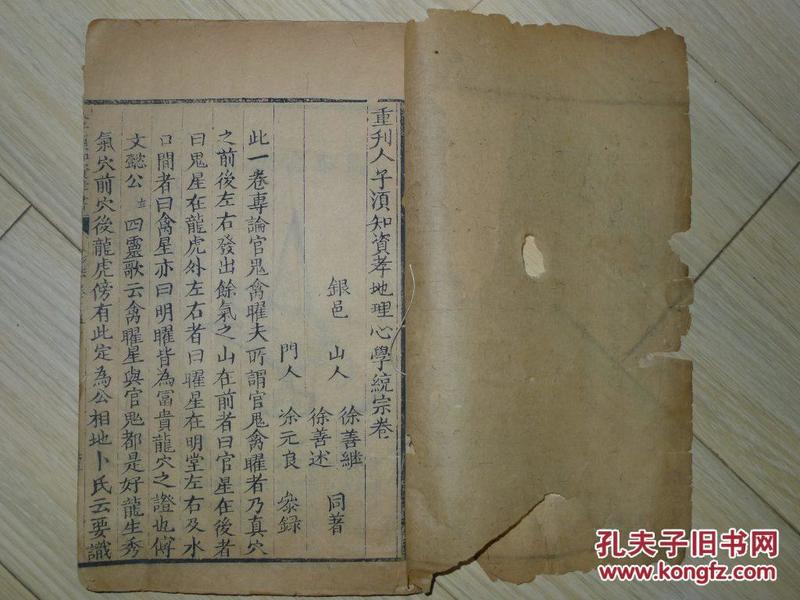 重刋人子須知資孝地理心學統宗卷
銀邑 山人 徐善繼
徐善述 同著
門人 凃元良 叅録
此一卷專論官鬼禽曜夫所謂官鬼禽曜者乃真穴
之前後左右發出餘氣之山在前者曰官星在後者
曰鬼星在龍虎外左右者曰曜星在明堂左右及水
口間者曰禽星亦曰明曜皆為冨貴龍穴之證也傅
文懿公 四靈歌云禽曜星與官鬼都是好龍生秀
氣穴前穴後龍虎傍有此定為公相地卜氏云要識
孔夫子旧书网
www.kongfz.com